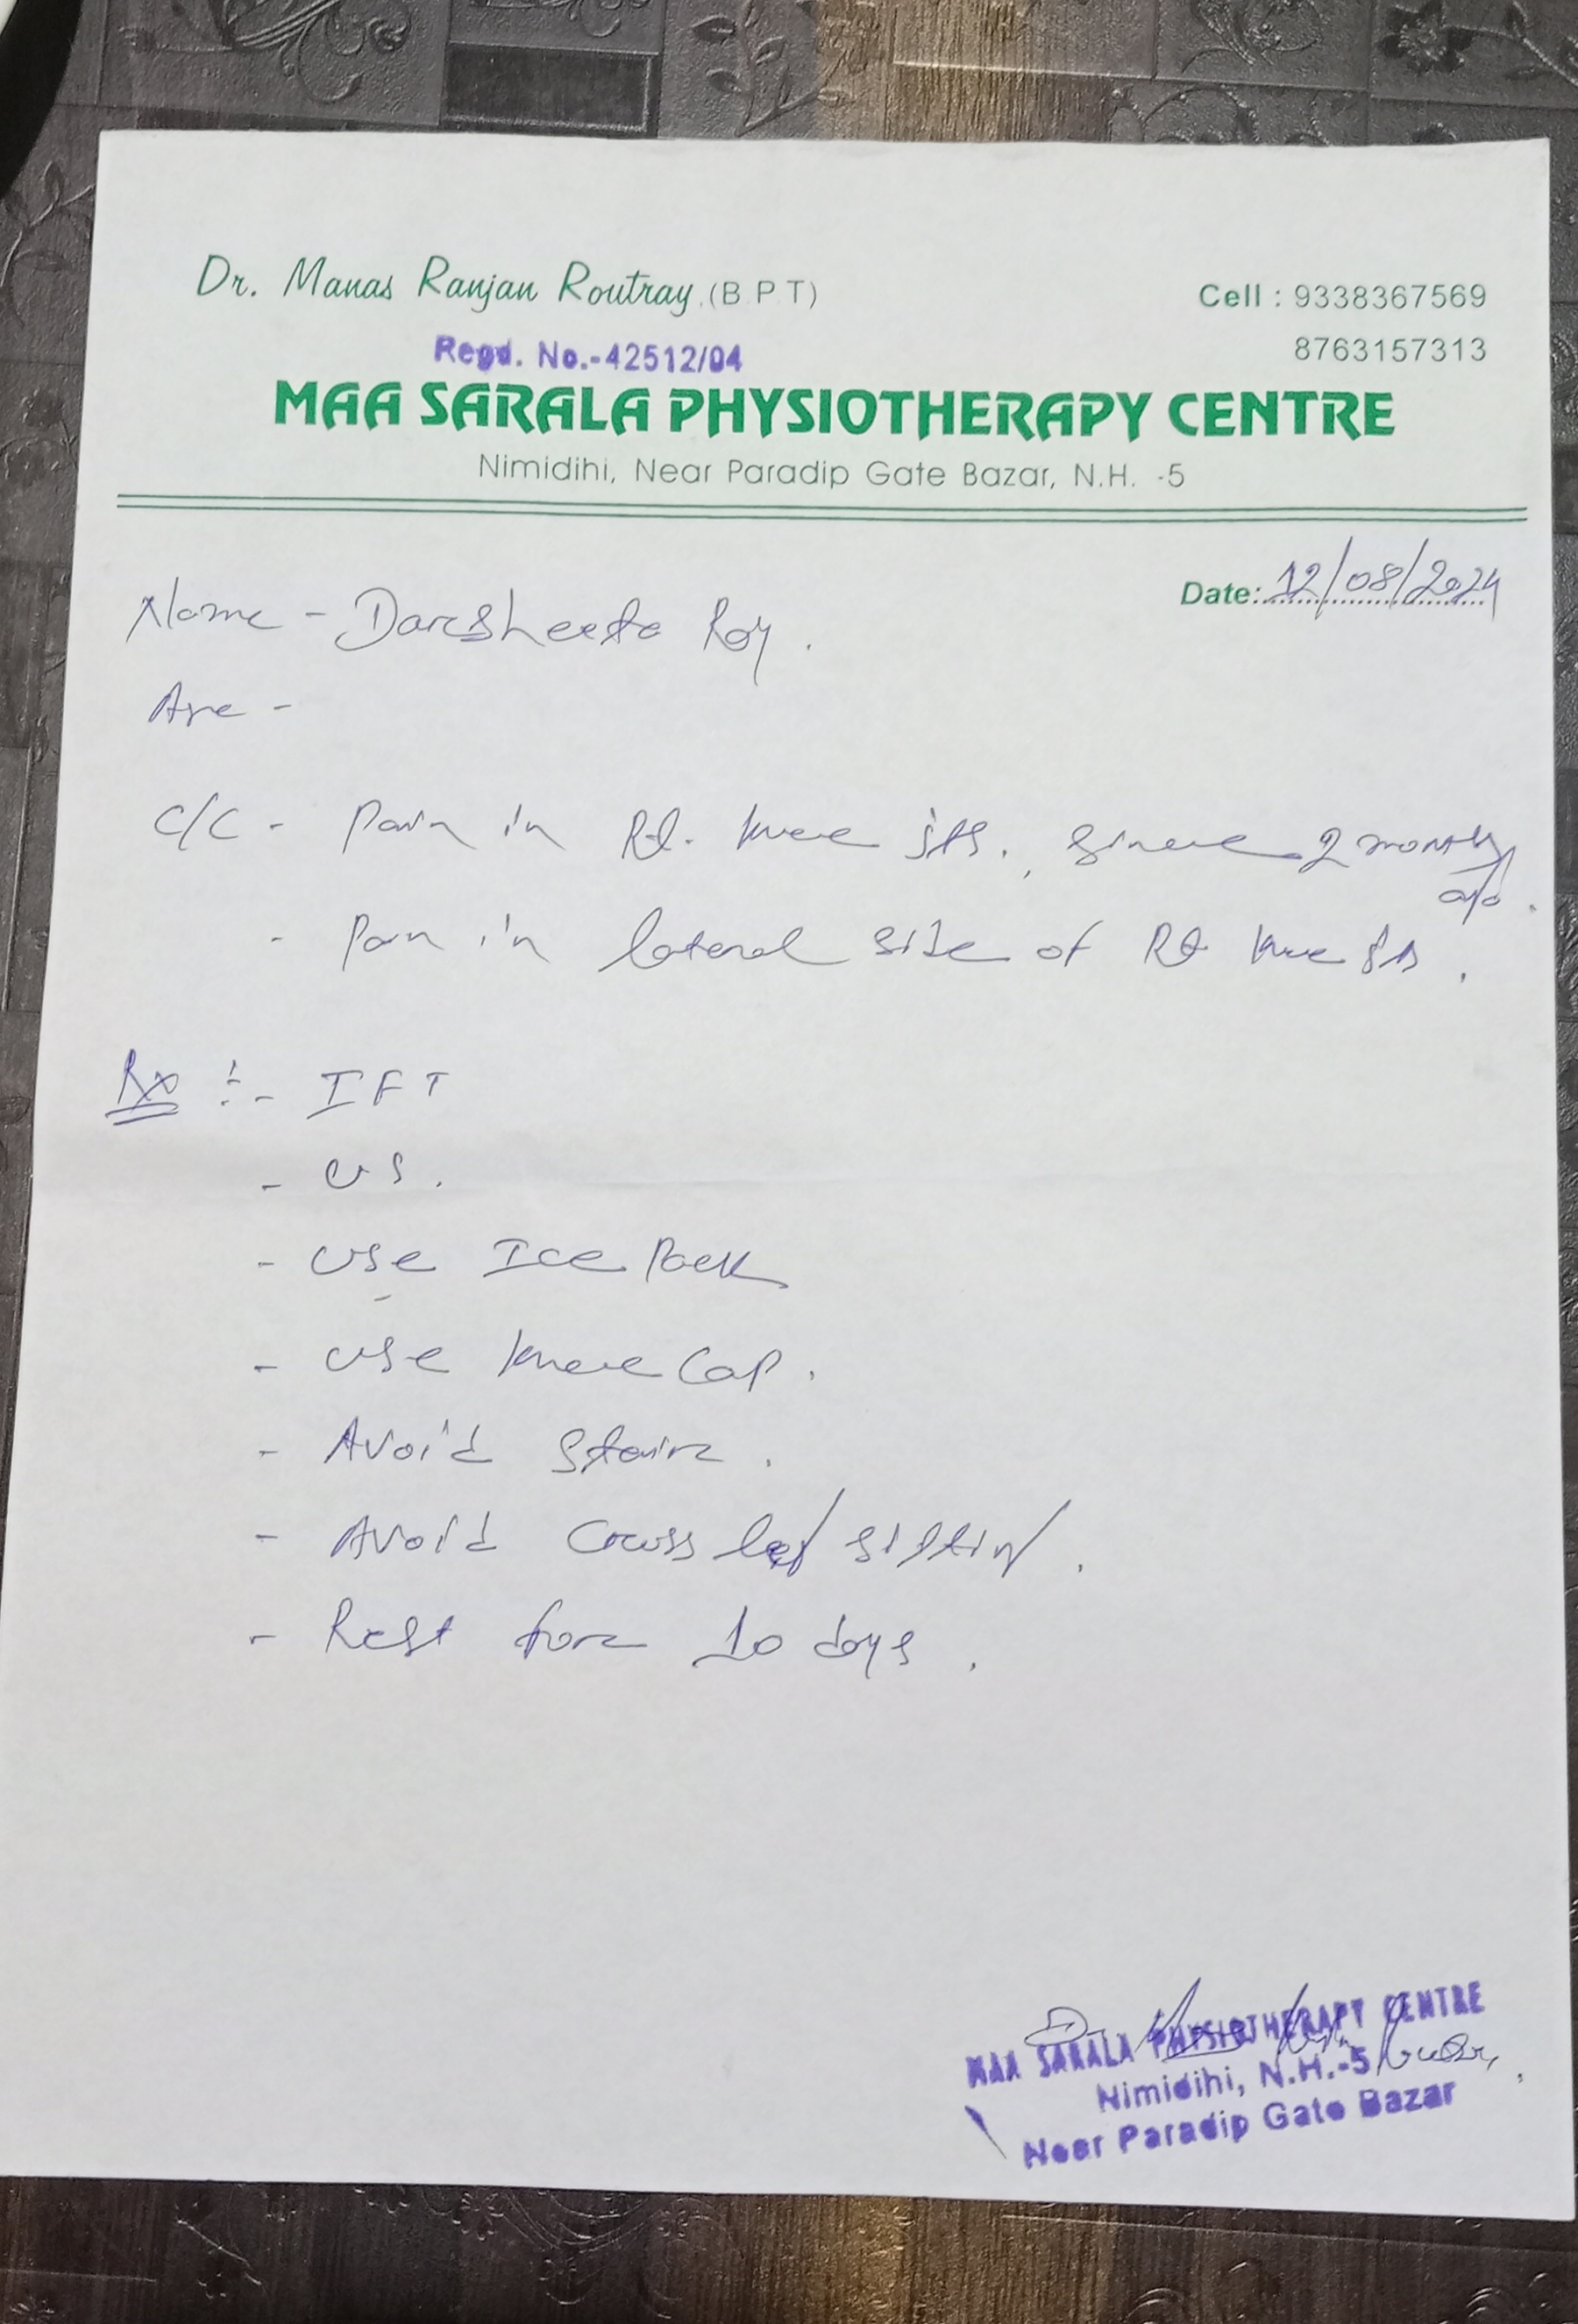 Dr. Manas Ranjan Routray (B.P.T)
Cell : 9338367569
8763157313
Regd. No.-42512/04
MAA SARALA PHYSIOTHERAPY CENTRE
Nimidihi, Near Paradip Gate Bazar, N.H. -5
Date: 12/08/2024
Name - Darsheeta Roy.
Age -
C/C - Pain in Rt. knee jts. since 2 months
- Pain in lateral side of Rt knee
Rx :- IFT
- US.
- Use Ice Pack
- Use knee Cap.
- Avoid Stair.
- Avoid Cross leg sitting.
- Rest for 10 days.
MAA SARALA PHYSIOTHERAPY CENTRE
Nimidihi, N.H.-5
Near Paradip Gate Bazar